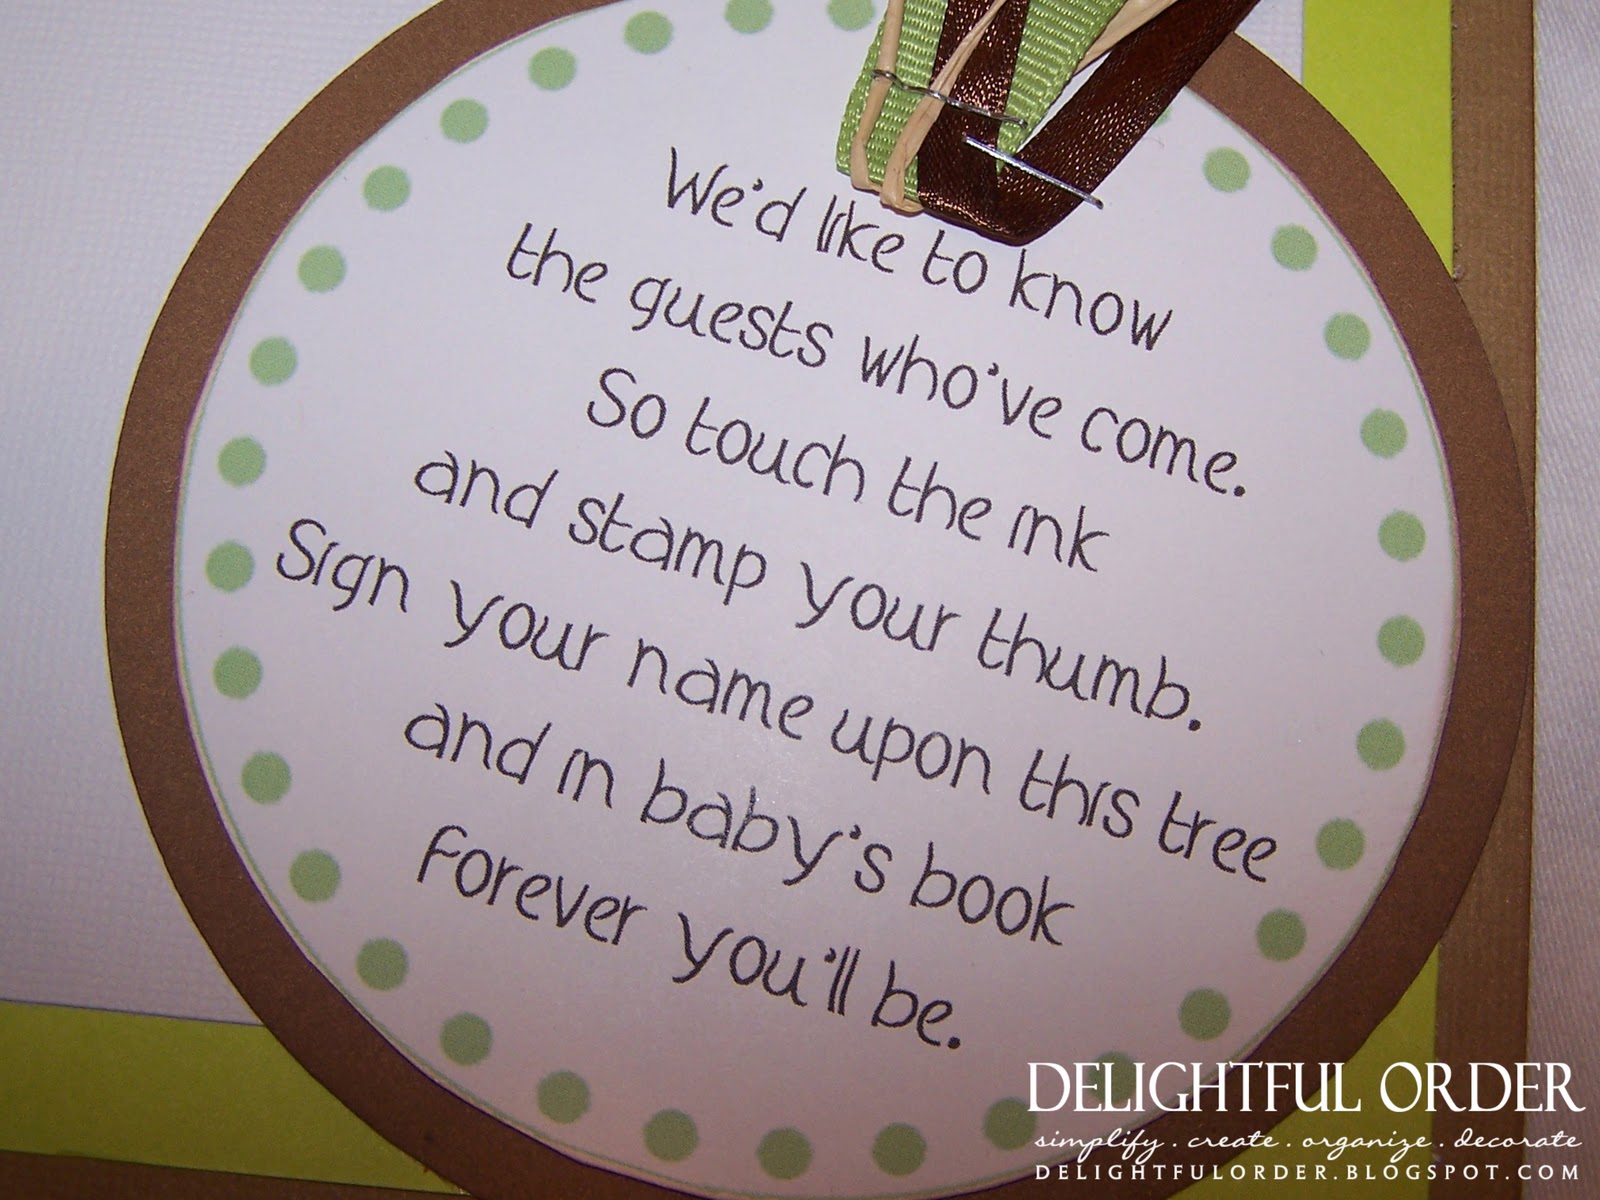 We'd like to know
the guests who've come.
So touch the ink
and stamp your thumb.
Sign your name upon this tree
and in baby's book
forever you'll be.
DELIGHTFUL ORDER
simplify . create . organize . decorate
DELIGHTFULORDER.BLOGSPOT.COM